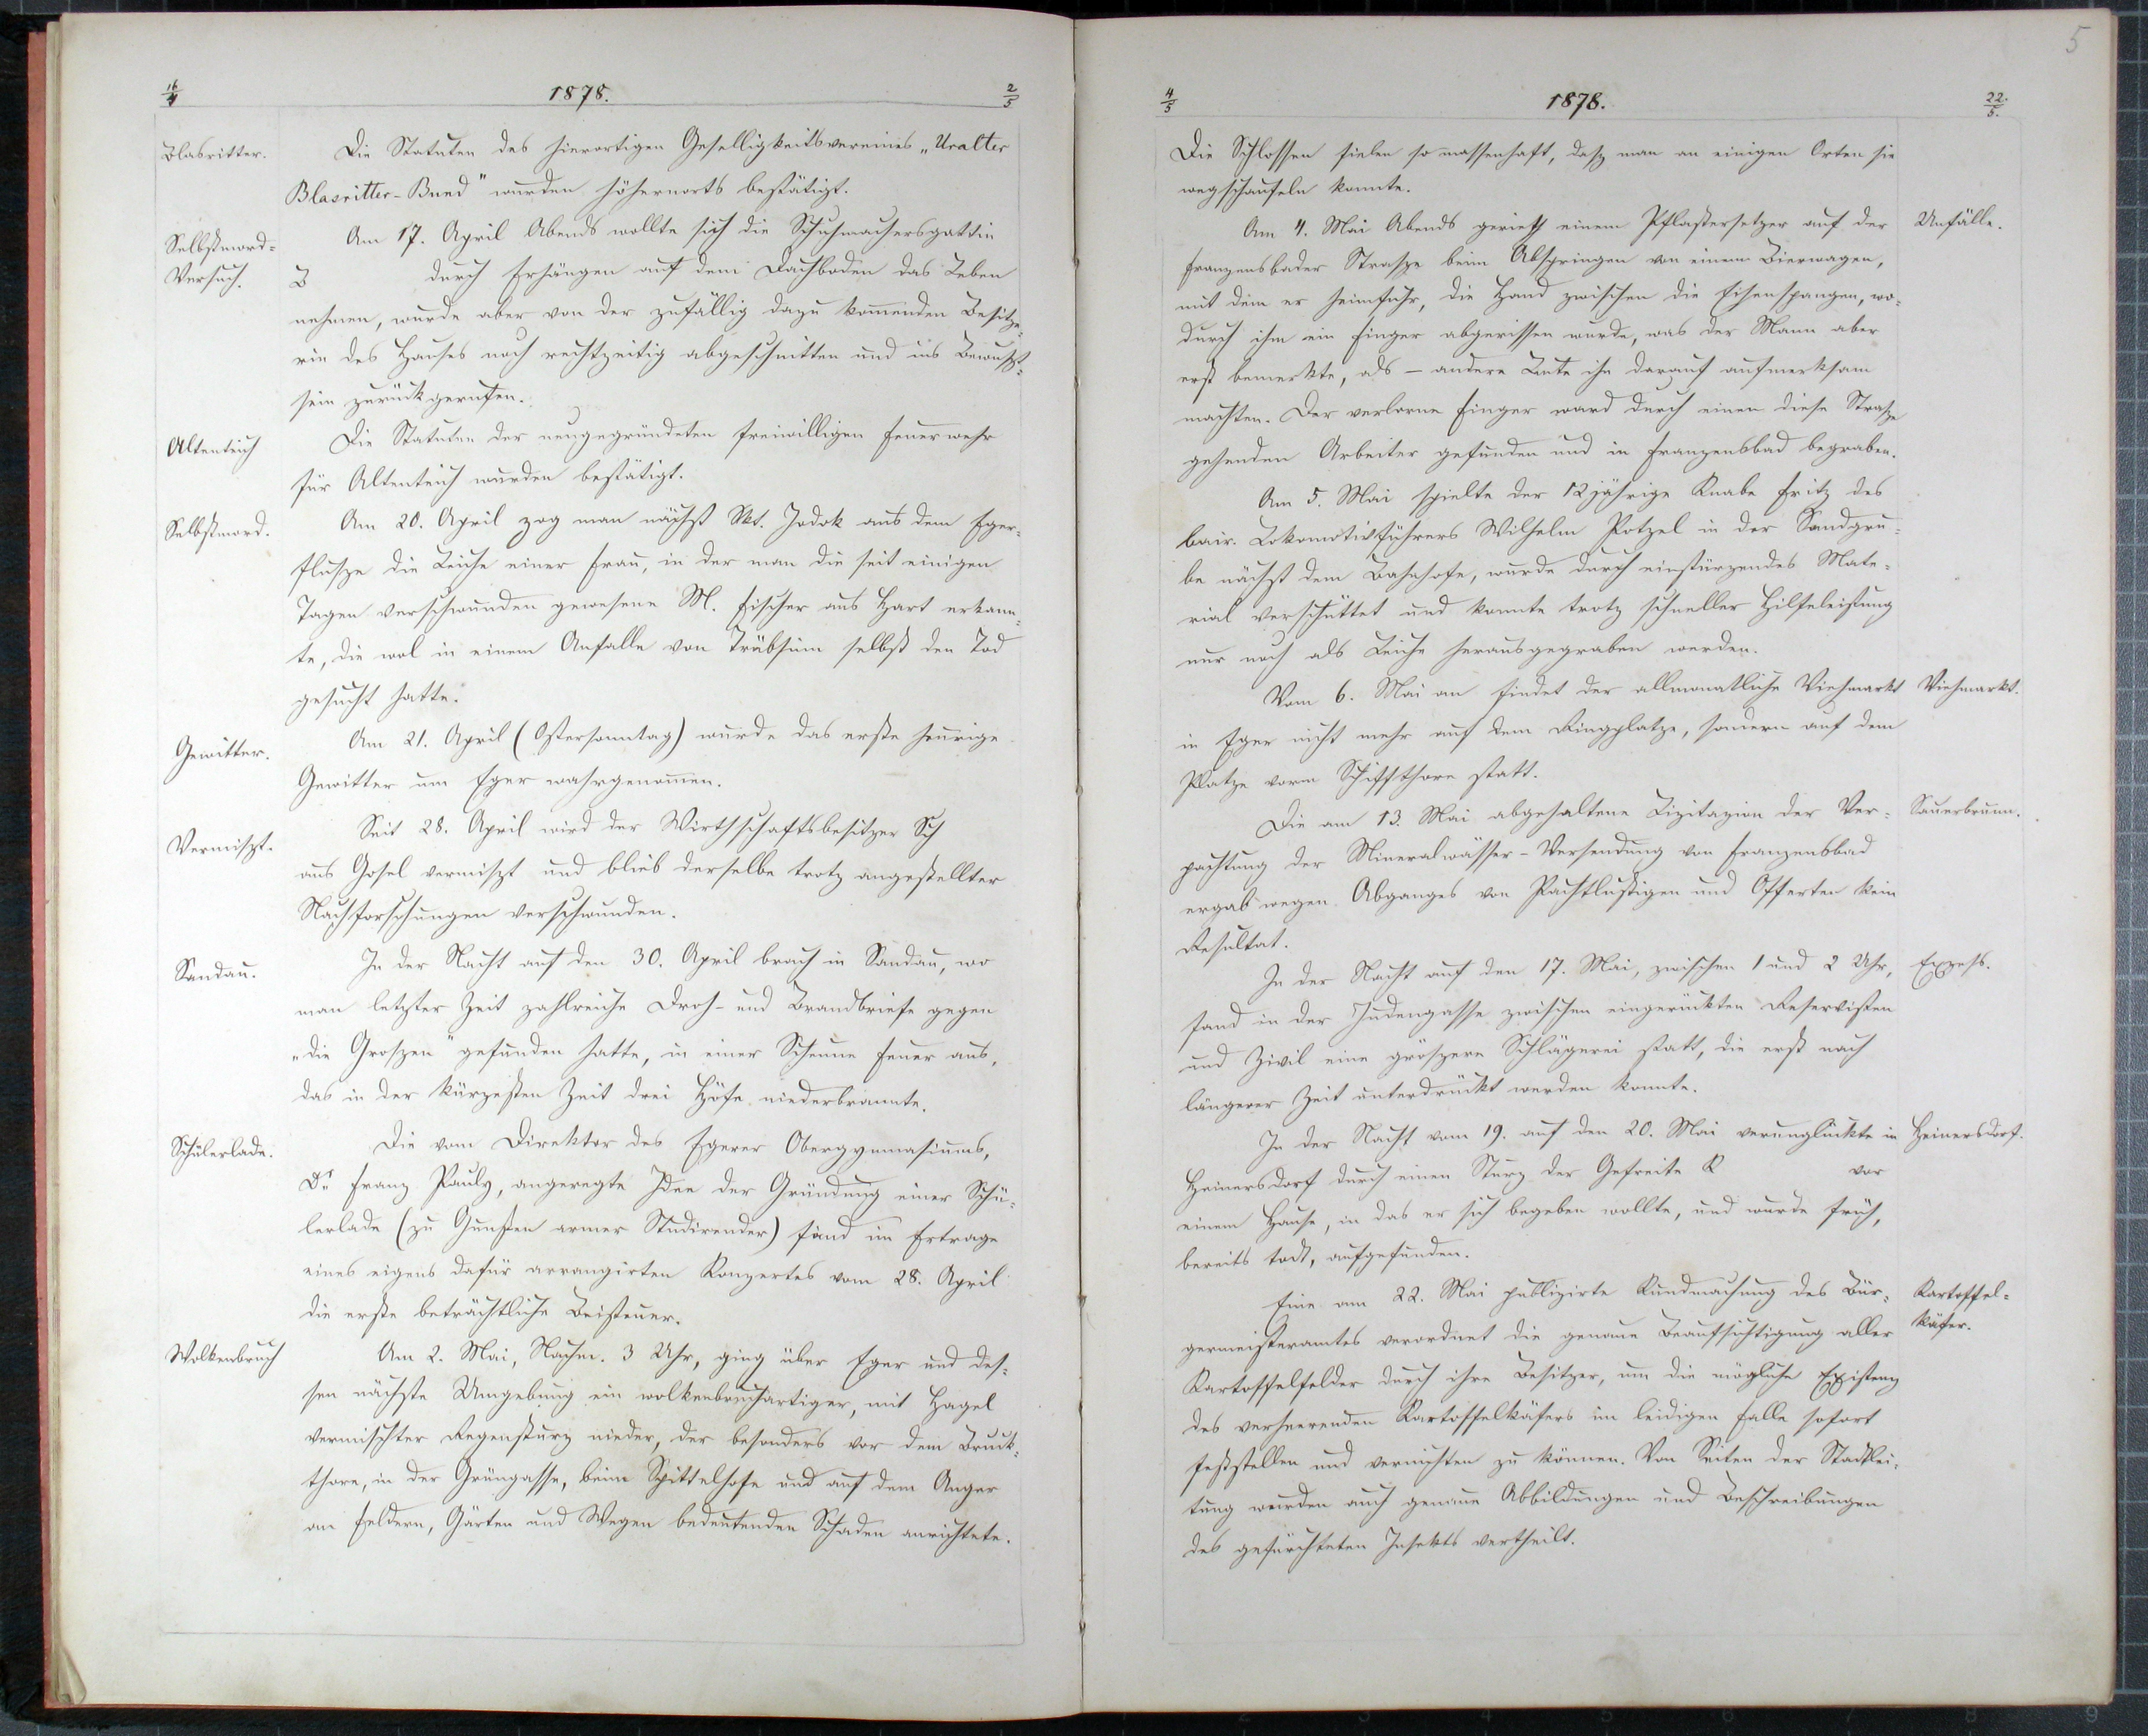 16/4 1878. 2/5
Blasritter.
Die Statuten des hierortigen Geselligkeitsvereines „Uralter
Blasritter-Bund" wurden höhernorts bestätigt.
Selbstmord-
Versuch.
Am 17. April Abends wollte sich die Schuhmachersgattin
Z durch Erhängen auf dem Dachboden das Leben
nehmen, wurde aber von der zufällig dazu kommenden Besitze-
rin des Hauses noch rechtzeitig abgeschnitten und ins Bewußt-
sein zurückgerufen.
Altenteich
Die Statuten der neugegründeten freiwilligen Feuerwehr
für Altenteich wurden bestätigt.
Selbstmord.
Am 20. April zog man nächst Skt. Jodok aus dem Eger-
flusze die Leiche einer Frau, in der man die seit einigen
Tagen verschwunden gewesene M. Fischer aus Hart erkann-
te, die wol in einem Anfalle von Trübsinn selbst den Tod
gesucht hatte.
Gewitter.
Am 21. April (Ostersonntag) wurde das erste heurige
Gewitter um Eger wahrgenommen.
Vermiszt.
Seit 28. April wird der Wirthschaftsbesitzer Sch
aus Gosel vermiszt und blieb derselbe trotz angestellter
Nachforschungen verschwunden.
Sandau.
In der Nacht auf den 30. April brach in Sandau, wo
man letzter Zeit zahlreiche Droh- und Brandbriefe gegen
„die Groszen" gefunden hatte, in einer Scheune Feuer aus,
das in der kürzesten Zeit drei Höfe niederbrannte.
Schülerlade.
Die vom Direktor des Egerer Obergymnasiums,
Dr. Franz Pauly, angeregte Idee der Gründung einer Schü-
lerlade (zu Gunsten armer Studirender) fand im Ertrage
eines eigens dafür arrangirten Konzertes vom 28. April
die erste beträchtliche Beisteuer.
Wolkenbruch
Am 2. Mai, Nachm. 3 Uhr, ging über Eger und des-
sen nächste Umgebung ein wolkenbruchartiger, mit Hagel
vermischter Regensturz nieder, der besonders vor dem Bruck-
thore, in der Grüngasse, beim Spittelhofe und auf dem Anger
an Feldern, Gärten und Wegen bedeutenden Schaden anrichtete.
5
4/5 1878. 22./5.
Die Schlossen fielen so massenhaft, dasz man an einigen Orten sie
wegschaufeln konnte.
Am 4. Mai Abends gerieth einem Pflastersetzer auf der
Unfälle.
Franzensbader Strasze beim Abspringen von einem Bierwagen,
mit dem er heimfuhr, die Hand zwischen die Eisenspangen, wo-
durch ihm ein Finger abgerissen wurde, was der Mann aber
erst bemerkte, als – andere Leute ihn darauf aufmerksam
machten. Der verlorne Finger ward durch einen diese Strasze
gehenden Arbeiter gefunden und in Franzensbad begraben.
Am 5. Mai spielte der 12jährige Knabe Fritz des
bair. Lokomotivführers Wilhelm Potzel in der Sandgru-
be nächst dem Bahnhofe, wurde durch einstürzendes Mate-
rial verschüttet und konnte trotz schneller Hilfeleistung
nur noch als Leiche herausgegraben werden.
Vom 6. Mai an findet der allmonatliche Viehmarkt
Viehmarkt.
in Eger nicht mehr auf dem Ringplatze, sondern auf dem
Platze vorm Schiffthore statt.
Die am 13. Mai abgehaltene Lizitazion der Ver-
Sauerbrunn.
pachtung der Mineralwässer-Versendung von Franzensbad
ergab wegen Abganges von Pachtlustigen und Offerten kein
Resultat.
In der Nacht auf den 17. Mai, zwischen 1 und 2 Uhr,
Exzess.
fand in der Judengasse zwischen eingerückten Reservisten
und Zivil eine gröszere Schlägerei statt, die erst nach
längerer Zeit unterdrückt werden konnte.
In der Nacht vom 19. auf den 20. Mai verunglückte in
Heinersdorf.
Heinersdorf durch einen Sturz der Gefreite R vor
einem Hause, in das er sich begeben wollte, und wurde früh,
bereits todt, aufgefunden.
Eine am 22. Mai publizirte Kundmachung des Bür-
Kartoffel-
käfer.
germeisteramtes verordnet die genaue Beaufsichtigung aller
Kartoffelfelder durch ihre Besitzer, um die mögliche Existenz
des verheerenden Kartoffelkäfers im leidigen Falle sofort
feststellen und vernichten zu können. Von Seiten der Stadtlei-
tung wurden auch genaue Abbildungen und Beschreibungen
des gefürchteten Insekts vertheilt.